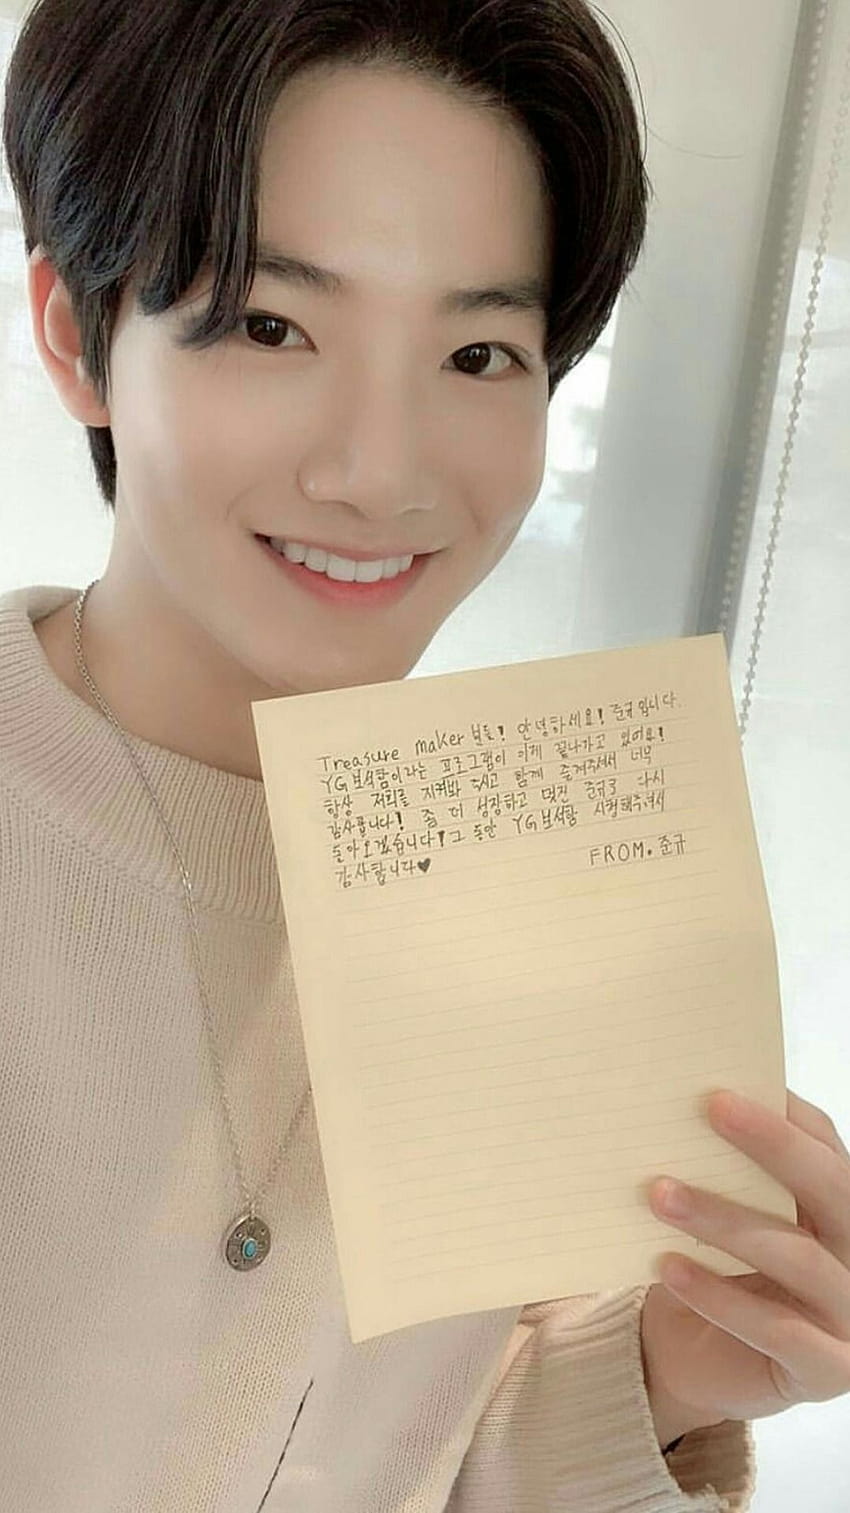 Treasure maker 분들! 안녕하세요! 준규입니다.
YG보석함이라는 프로그램이 이제 끝나가고 있어요!
항상 저희를 지켜봐 주시고 함께 즐겨주셔서 너무
감사합니다! 좀 더 성장하고 멋진 준규로 다시
돌아오겠습니다! 그 동안 YG보석함 시청해주셔서
감사합니다♥
FROM. 준규